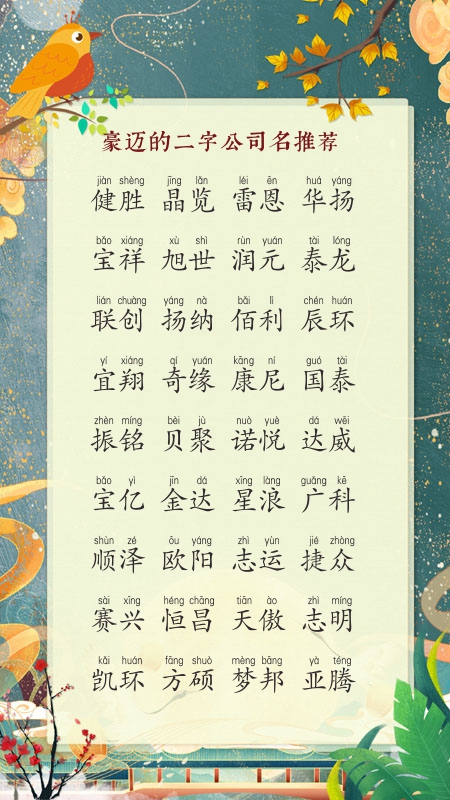 豪迈的二字公司名推荐
jiàn shèng jīng lǎn léi ēn huá yáng
健胜 晶览 雷恩 华扬
bǎo xiáng xù shì rùn yuán tài lóng
宝祥 旭世 润元 泰龙
lián chuàng yáng nà bǎi lì chén huán
联创 扬纳 佰利 辰环
yí xiáng qí yuán kāng ní guó tài
宜翔 奇缘 康尼 国泰
zhèn míng bèi jù nuò yuè dá wēi
振铭 贝聚 诺悦 达威
bǎo yì jīn dá xīng làng guǎng kē
宝亿 金达 星浪 广科
shùn zé ōu yáng zhì yùn jié zhòng
顺泽 欧阳 志运 捷众
sài xīng héng chāng tiān ào zhì míng
赛兴 恒昌 天傲 志明
kǎi huán fāng shuò mèng bāng yà téng
凯环 方硕 梦邦 亚腾